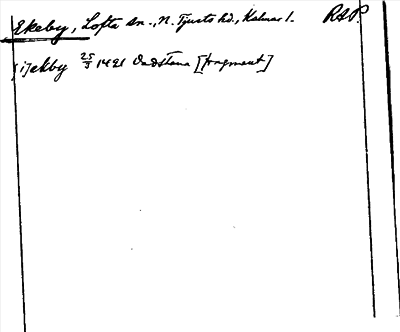 Ekeby, Lofta sn., N. Tjusts hd., Kalmar l. RAP.
(i) ekby 25/3 1421 Vadstena [fragment]